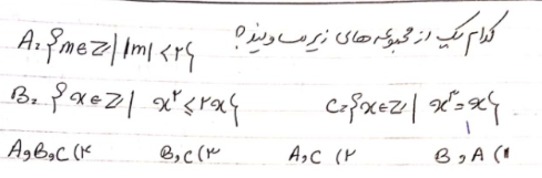 کدام یک از مجموعه های زیر مساویند؟
A = {m∈Z | |m| < ۲}
B = {x∈Z | x² ≤ ۲x}    C = {x∈Z | x³ = x}
۱) B و A    ۲) A و C    ۳) B و C    ۴) A و B و C